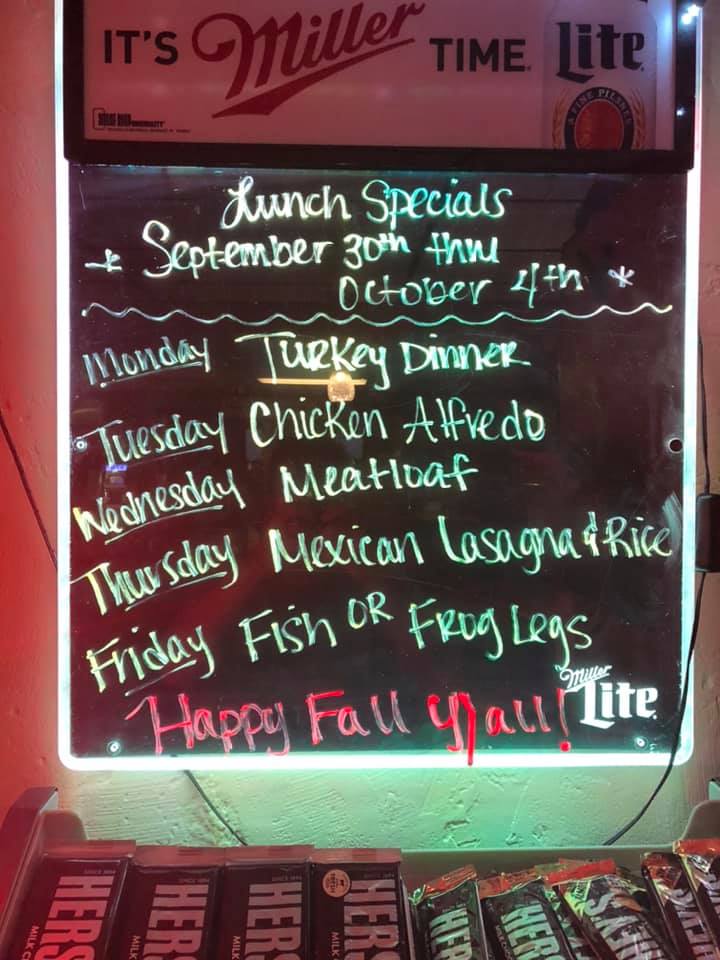 IT'S Miller TIME. Lite
A FINE PILSNER
Lunch Specials
* September 30th thru
October 4th *
Monday Turkey Dinner
Tuesday Chicken Alfredo
Wednesday Meatloaf
Thursday Mexican Lasagna & Rice
Friday Fish OR Frog Legs
Happy Fall Y'all!
Miller
Lite
HERS
MILK C
HERS
MILK
HERS
MILK
HERS
MILK
HER
HER